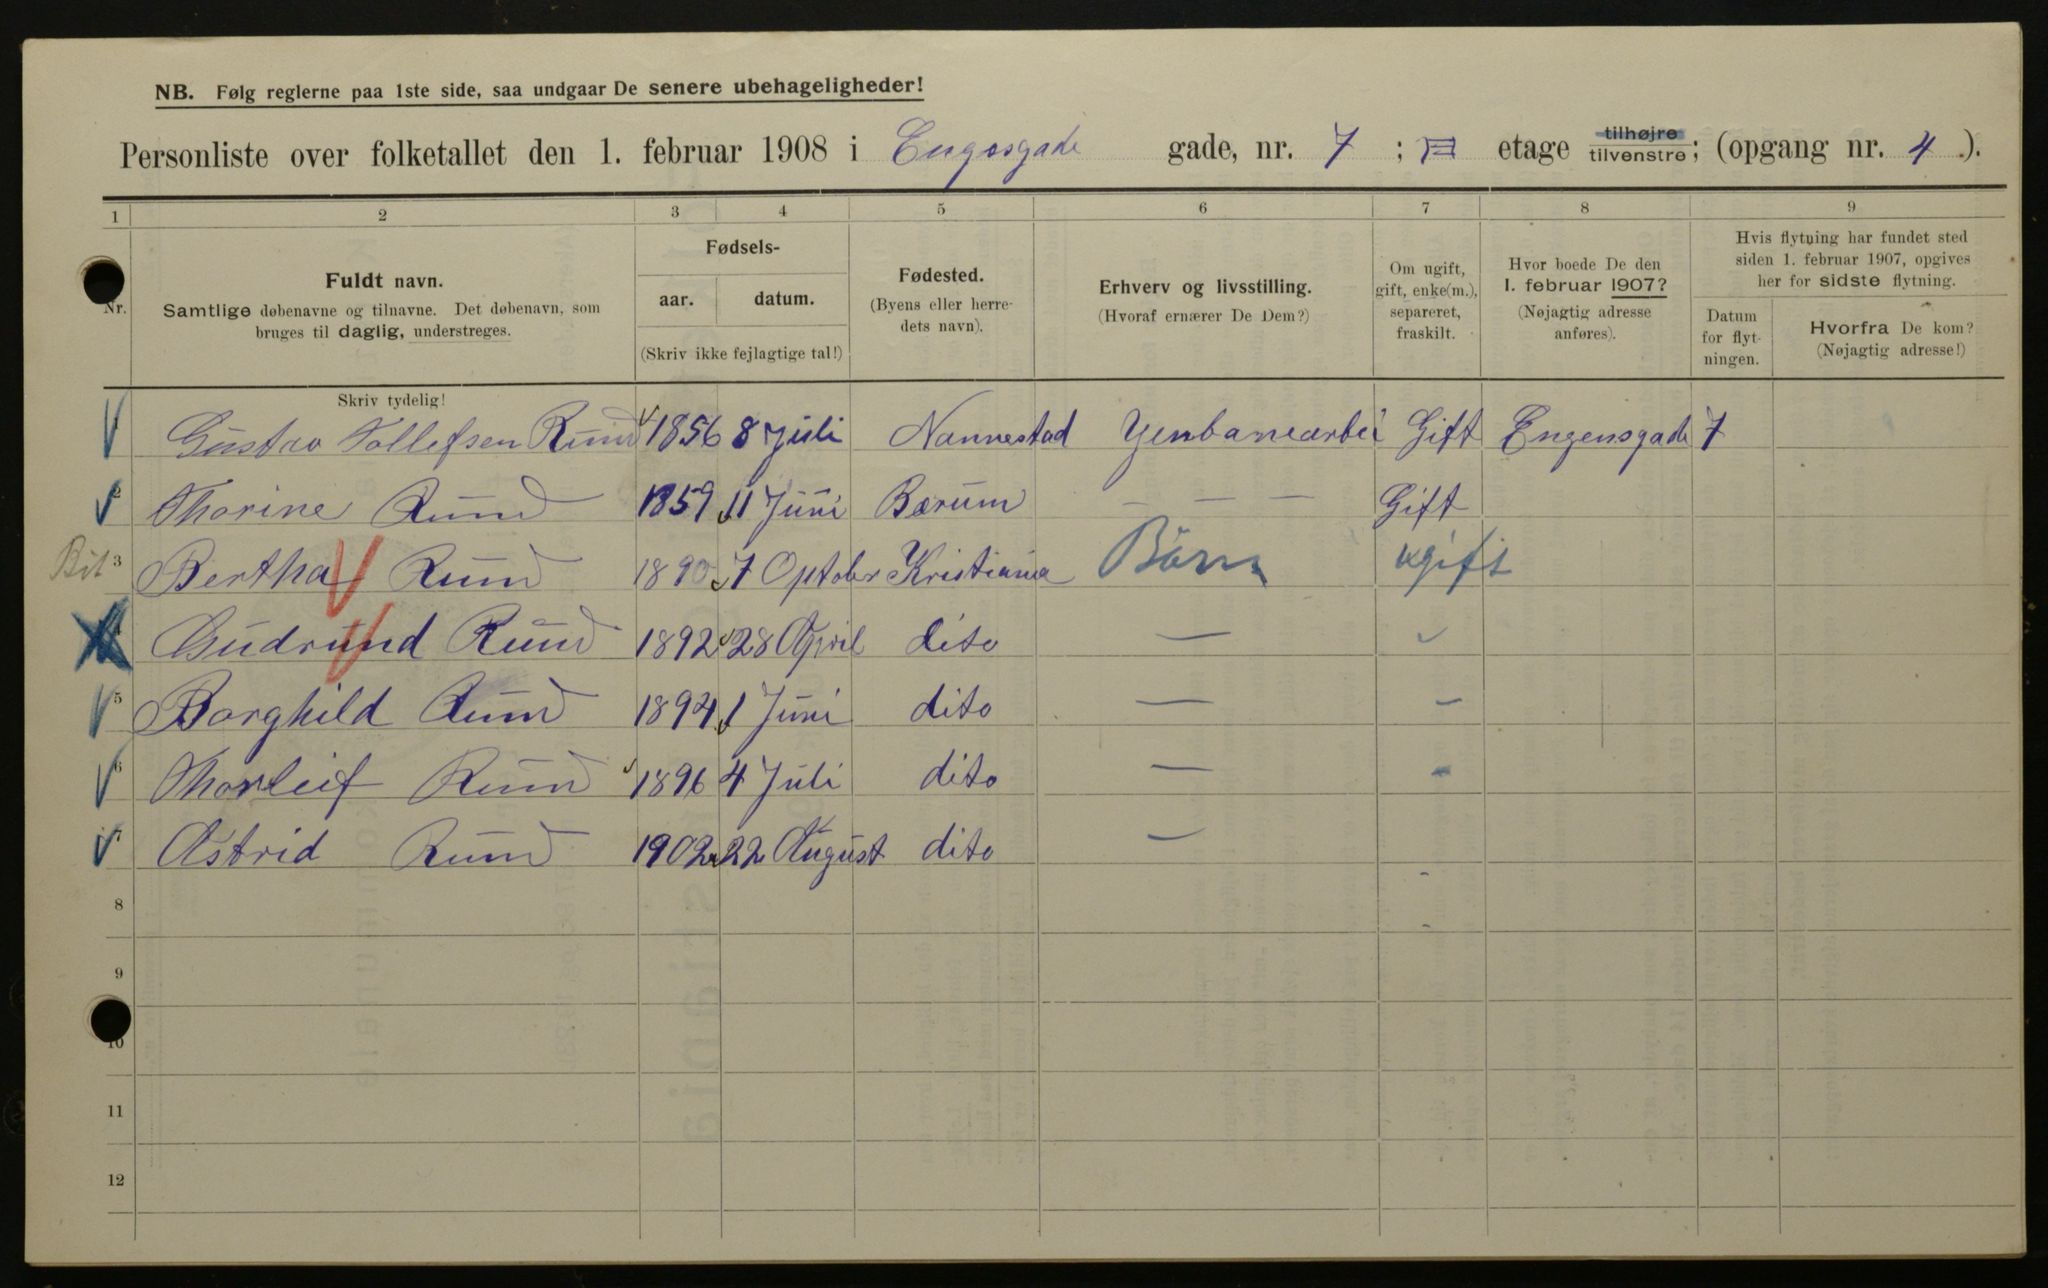 NB. Følg reglerne paa 1ste side, saa undgaar De senere ubehageligheder!
Personliste over folketallet den 1. februar 1908 i Engesgade gade, nr. 7 ; etage tilhøjre tilvenstre; (opgang nr. 4 ).
1 2 3 4 5 6 7 8 9
Nr.
Fuldt navn.
Samtlige døbenavne og tilnavne. Det døbenavn, som
bruges til daglig, understreges.
Skriv tydelig!
Fødsels-
aar. datum.
(Skriv ikke fejlagtige tal!)
Fødested.
(Byens eller herre-
dets navn).
Erhverv og livsstilling.
(Hvoraf ernærer De Dem?)
Om ugift,
gift, enke(m.),
separeret,
fraskilt.
Hvor boede De den
1. februar 1907?
(Nøjagtig adresse
anføres).
Hvis flytning har fundet sted
siden 1. februar 1907, opgives
her for sidste flytning.
Datum
for flyt-
ningen.
Hvorfra De kom?
(Nøjagtig adresse!)
Gustav Tollefsen Ruud 1856 8 Juli Nannestad Yenbanearbei Gift Engensgade 7
2 Thorine Ruud 1859 11 Juni Bærum — — — Gift
Bit 3 Bertha Ruud 1890 7 Optober Kristiania Börn ugift
4 Gudrund Ruud 1892 28 April dito —
5 Borghild Ruud 1894 1 Juni dito — -
6 Thorleif Ruud 1896 4 Juli dito — -
7 Astrid Ruud 1902 22 August dito —
8
9
10
11
12